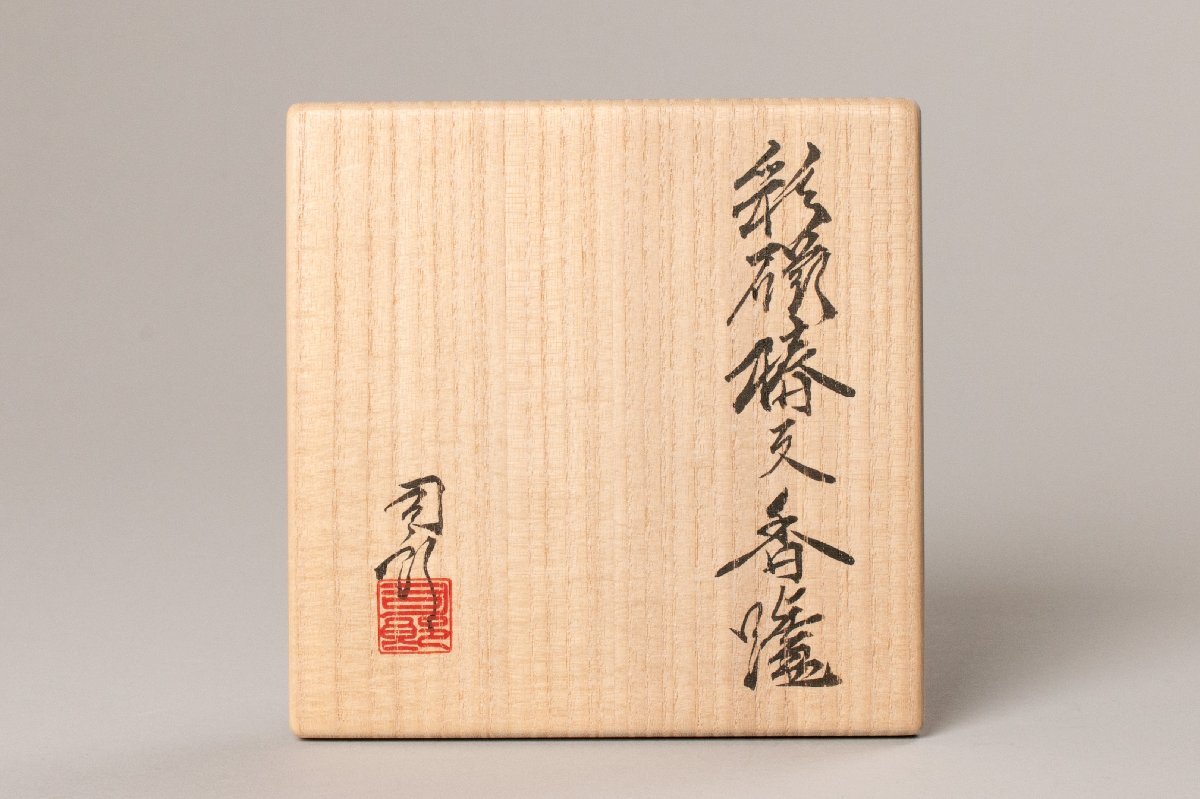 彩磁椿文香爐
司郎